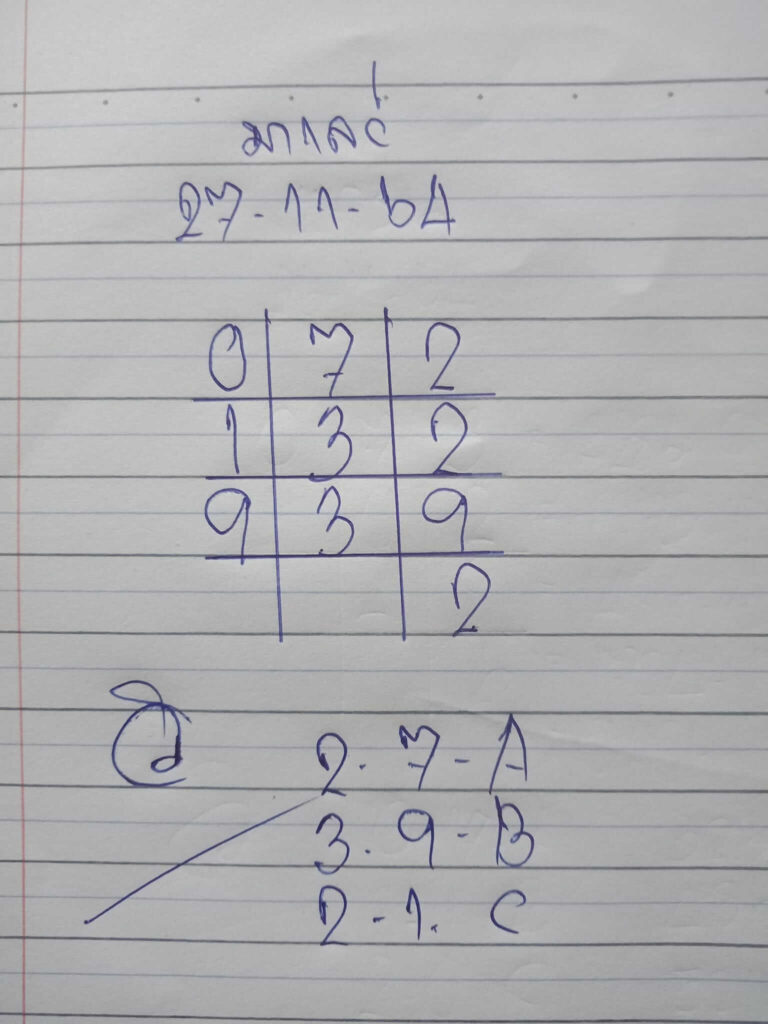 มาเลย์
27-11-64
0 7 2
1 3 2
9 3 9
2
2-7-A
3-9-B
2-1-C